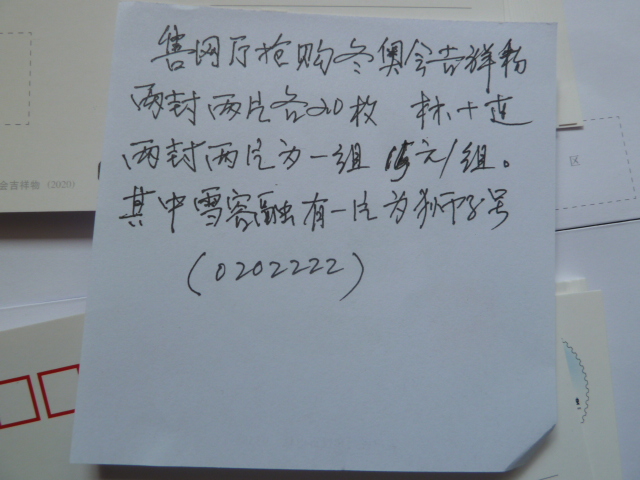 售网厅抢购冬奥会吉祥物
两封两片各20枚 林十连
两封两片为一组 15元/组。
其中雪容融有一片为狮子号
(0202222)
会吉祥物 (2020)
区